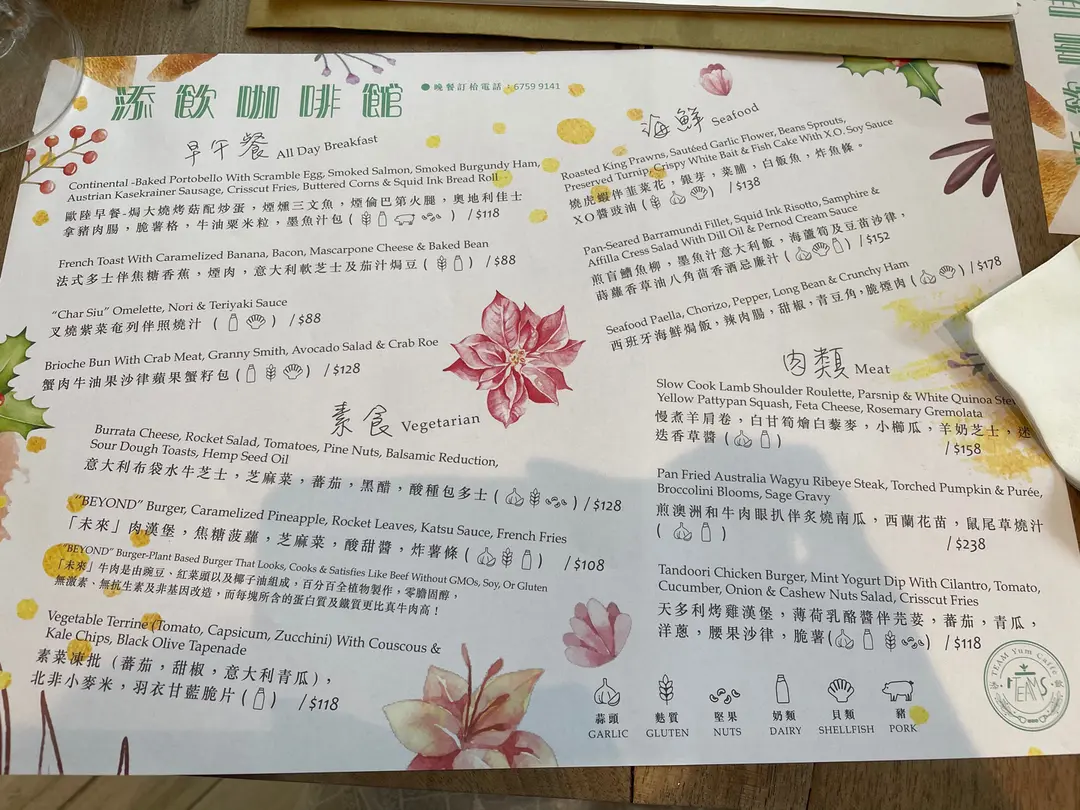 添飲咖啡館
●晚餐訂枱電話:6759 9141
早午餐 All Day Breakfast
Continental -Baked Portobello With Scramble Egg, Smoked Salmon, Smoked Burgundy Ham,
Austrian Kasekrainer Sausage, Crisscut Fries, Buttered Corns & Squid Ink Bread Roll
歐陸早餐-焗大燒烤菇配炒蛋，煙燻三文魚，煙倫巴第火腿，奧地利佳士
拿豬肉腸，脆薯格，牛油粟米粒，墨魚汁包 ( ) / $118
French Toast With Caramelized Banana, Bacon, Mascarpone Cheese & Baked Bean
法式多士伴焦糖香蕉，煙肉，意大利軟芝士及茄汁焗豆 ( ) / $88
“Char Siu” Omelette, Nori & Teriyaki Sauce
叉燒紫菜奄列伴照燒汁 ( ) / $88
Brioche Bun With Crab Meat, Granny Smith, Avocado Salad & Crab Roe
蟹肉牛油果沙律蘋果蟹籽包 ( ) / $128
素食 Vegetarian
Burrata Cheese, Rocket Salad, Tomatoes, Pine Nuts, Balsamic Reduction,
Sour Dough Toasts, Hemp Seed Oil
意大利布袋水牛芝士，芝麻菜，蕃茄，黑醋，酸種包多士 ( ) / $128
“BEYOND” Burger, Caramelized Pineapple, Rocket Leaves, Katsu Sauce, French Fries
「未來」肉漢堡，焦糖菠蘿，芝麻菜，酸甜醬，炸薯條 ( ) / $108
“BEYOND” Burger-Plant Based Burger That Looks, Cooks & Satisfies Like Beef Without GMOs, Soy, Or Gluten
「未來」牛肉是由豌豆、紅菜頭以及椰子油組成，百分百全植物製作，零膽固醇，
無激素、無抗生素及非基因改造，而每塊所含的蛋白質及鐵質更比真牛肉高！
Vegetable Terrine (Tomato, Capsicum, Zucchini) With Couscous &
Kale Chips, Black Olive Tapenade
素菜凍批 (蕃茄，甜椒，意大利青瓜)，
北非小麥米，羽衣甘藍脆片 ( ) / $118
海鮮 Seafood
Roasted King Prawns, Sautéed Garlic Flower, Beans Sprouts,
Preserved Turnip, Crispy White Bait & Fish Cake With X.O. Soy Sauce
燒虎蝦伴韮菜花，銀芽，菜脯，白飯魚，炸魚條。
XO醬豉油 ( ) / $138
Pan-Seared Barramundi Fillet, Squid Ink Risotto, Samphire &
Affilla Cress Salad With Dill Oil & Pernod Cream Sauce
煎盲鰽魚柳，墨魚汁意大利飯，海蘆筍及豆苗沙律，
蒔蘿香草油八角茴香酒忌廉汁 ( ) / $152
Seafood Paella, Chorizo, Pepper, Long Bean & Crunchy Ham
西班牙海鮮焗飯，辣肉腸，甜椒，青豆角，脆煙肉 ( ) / $178
肉類 Meat
Slow Cook Lamb Shoulder Roulette, Parsnip & White Quinoa
Yellow Pattypan Squash, Feta Cheese, Rosemary Gremolata
慢煮羊肩卷，白甘筍燴白藜麥，小櫛瓜，羊奶芝士，迷
迭香草醬 ( ) / $158
Pan Fried Australia Wagyu Ribeye Steak, Torched Pumpkin & Purée,
Broccolini Blooms, Sage Gravy
煎澳洲和牛肉眼扒伴炙燒南瓜，西蘭花苗，鼠尾草燒汁
( ) / $238
Tandoori Chicken Burger, Mint Yogurt Dip With Cilantro, Tomato,
Cucumber, Onion & Cashew Nuts Salad, Crisscut Fries
天多利烤雞漢堡，薄荷乳酪醬伴芫荽，蕃茄，青瓜，
洋蔥，腰果沙律，脆薯 ( ) / $118
蒜頭 麩質 堅果 奶類 貝類 豬
GARLIC GLUTEN NUTS DAIRY SHELLFISH PORK
TEAM Yum Caffe